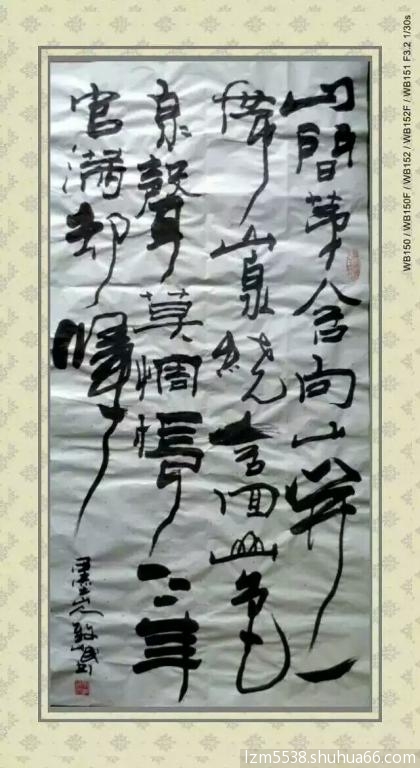 山間茅舍向山开一
帶山泉繞舍回山色
泉聲莫惆悵三年
官滿却歸来
WB150 / WB150F / WB152 / WB152F / WB151 F3.2 1/30s
lzm5538.shuhua66.com